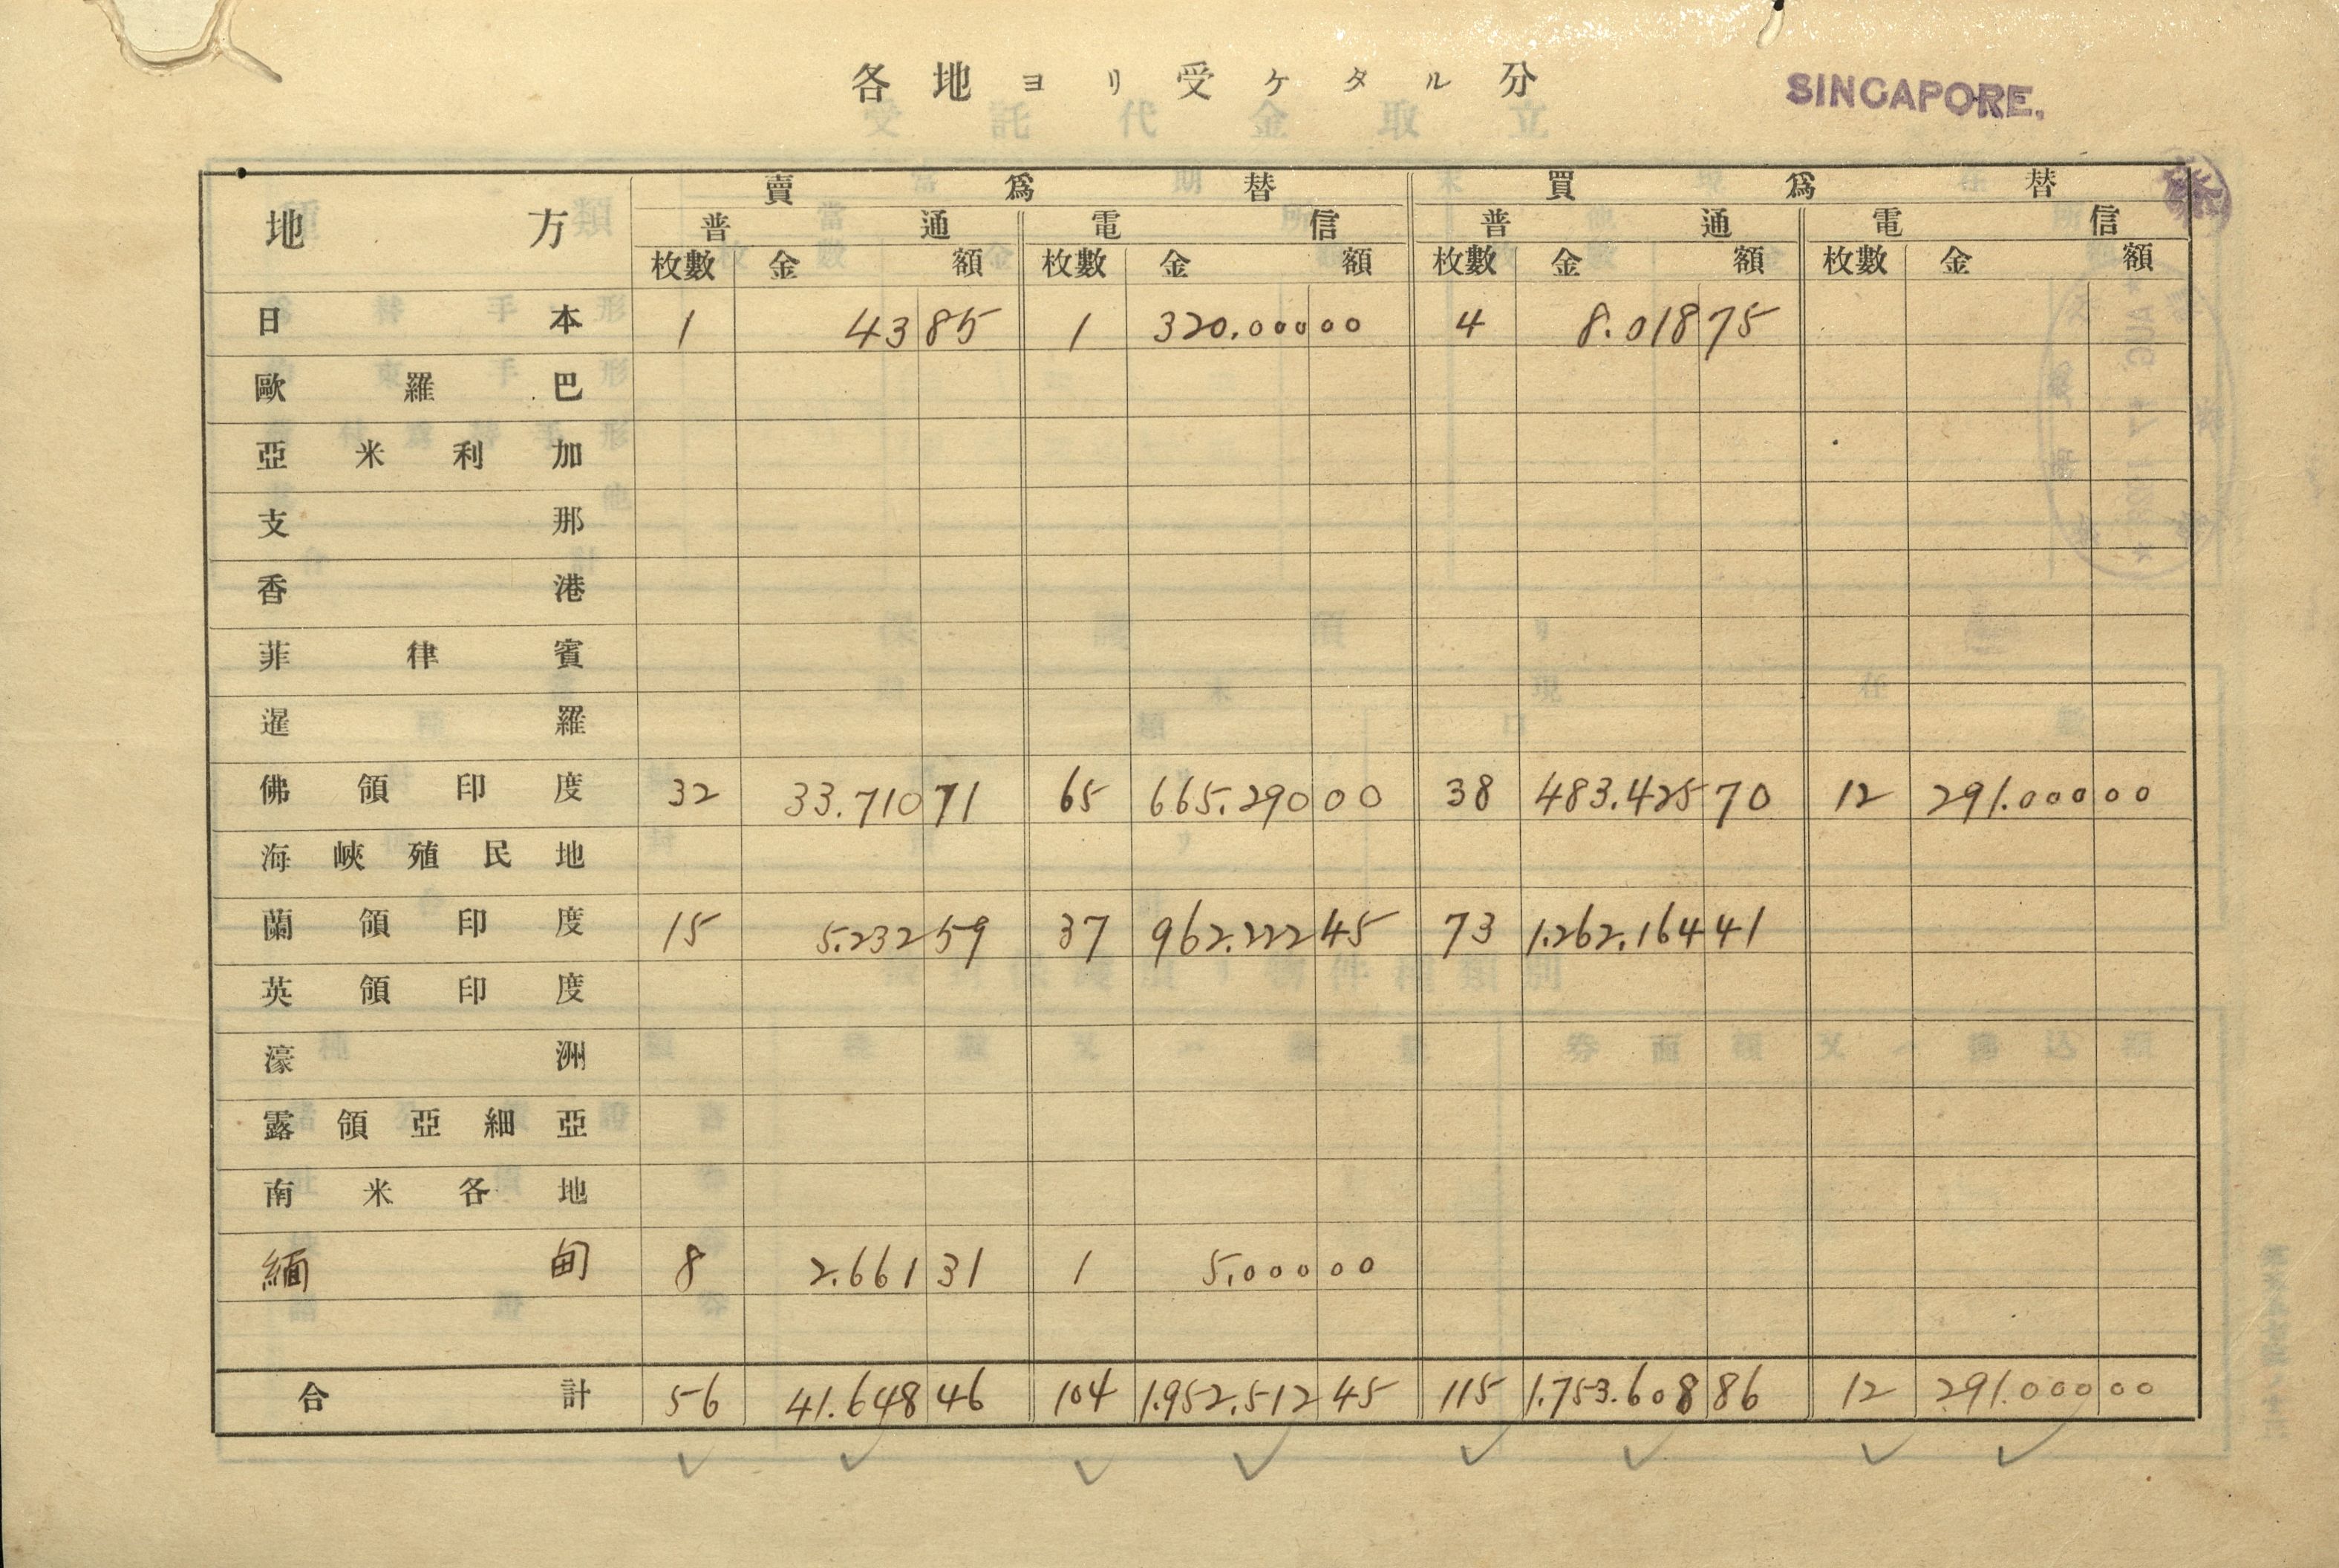 各地ヨリ受ケタル分
SINGAPORE.
地方 賣爲替 買爲替
普通 電信 普通 電信
枚數 金額 枚數 金額 枚數 金額 枚數 金額
日本 1 43 85 1 320.000 00 4 8.018 75
歐羅巴
亞米利加
支那
香港
菲律賓
暹羅
佛領印度 32 33.710 71 65 665.290 00 38 483.425 70 12 291.000 00
海峽殖民地
蘭領印度 15 5.232 59 37 962.222 45 73 1.262.164 41
英領印度
濠洲
露領亞細亞
南米各地
緬甸 8 2.661 31 1 5.000 00
合計 56 41.648 46 104 1.952.512 45 115 1.753.608 86 12 291.000 00